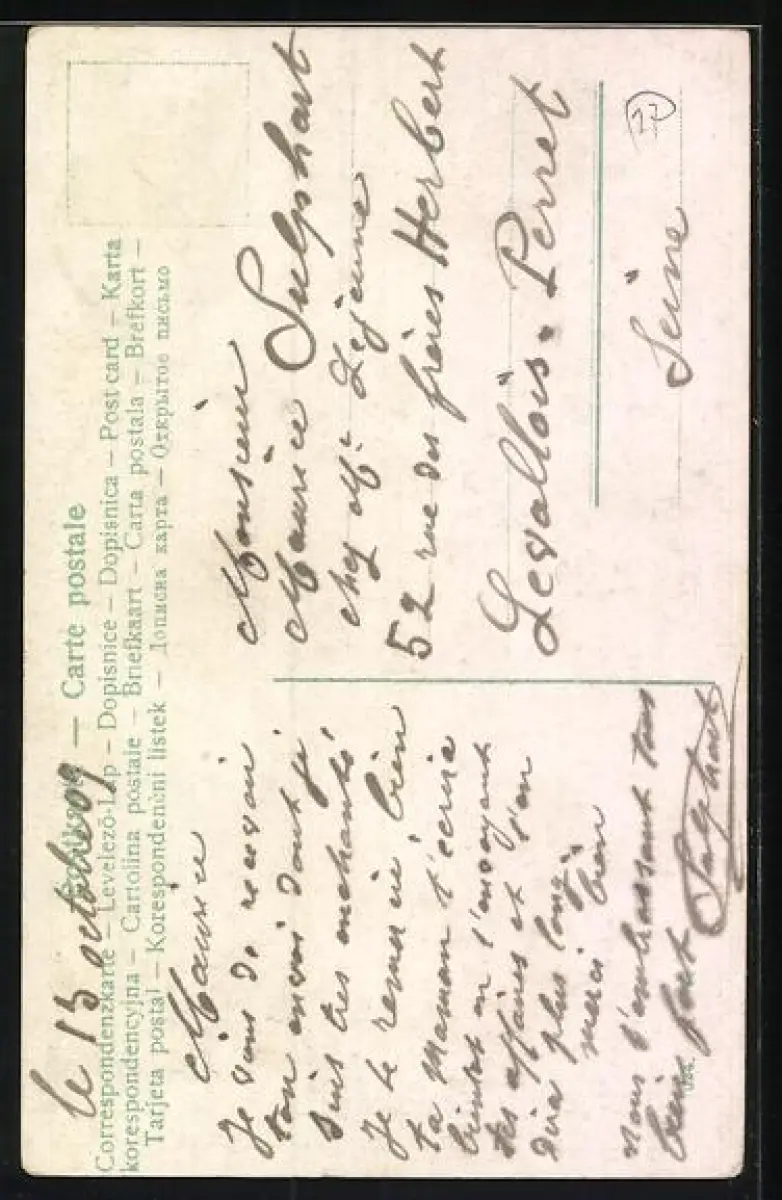 le 13 octobre 09
Postkarte — Carte postale
Correspondenzkarte — Levelező-Lap — Dopisnice — Dopisnica — Post card — Karta
korespondencyjna — Cartolina postale — Briefkaart — Carta postala — Brefkort —
Tarjeta postal — Korespondenčni listek — Дописна карта — Открытое письмо
Maurice
Je viens de recevoir
ton envoi dont je
suis très enchanté,
Je te remercie, bien
ta Maman t'écrira
bientot en t'envoyant
tes affaires et t'en
dira plus long,
merci bien
nous t'embrassant tous
bien fort
Sulphart
Monsieur
Maurice Sulphart
chez Mr Lejeune
52 rue des frères Herbert
Levallois-Perret
Seine